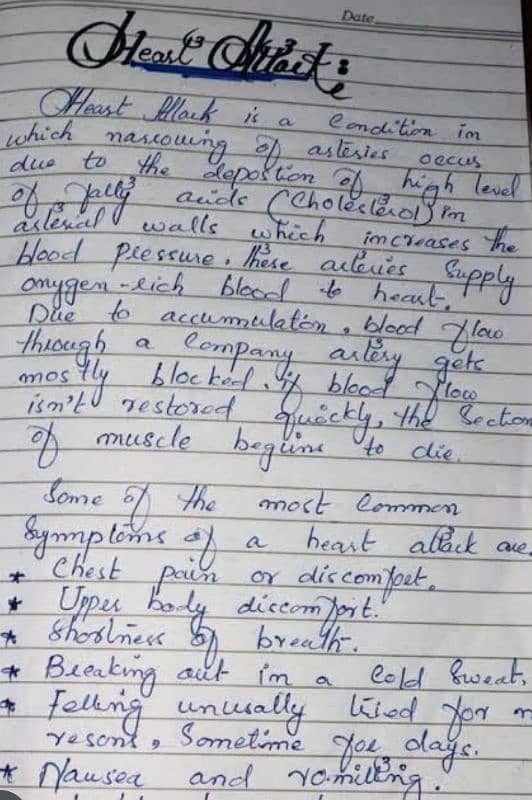 Date
Heart Attack :
Heart Attack is a condition in
which narrowing of arteries occurs
due to the depostion of high level
of fatty acids (Cholesterol) in
arterial walls which increases the
blood pressure. These arteries supply
oxygen-rich blood to heart.
Due to accumulation, blood flow
through a company artery gets
mostly blocked. if blood flow
isn't restored quickly, the Section
of muscle begins to die.
Some of the most Common
Symptoms of a heart attack are
* Chest pain or discomfort.
* Upper body discomfort.
* Shortness of breath.
* Breaking out in a cold Sweat.
* Felling unusally tired for
resons, Sometime for days.
* Nausea and vomitting.